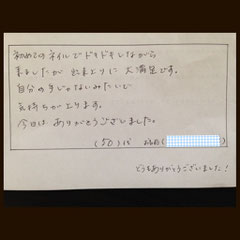 初めてのネイルでドキドキしながら
来ましたが 出来上りに 大満足です。
自分の手じゃないみたいで
気持ちが上ります。
今日は ありがとうございました。
(50)代
どうもありがとうございました!